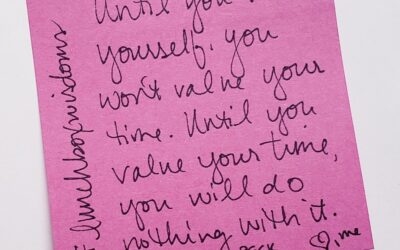 Until you
yourself, you
won't value your
time. Until you
value your time,
you will do
nothing with it.
♡, me
lunchboxwisdoms